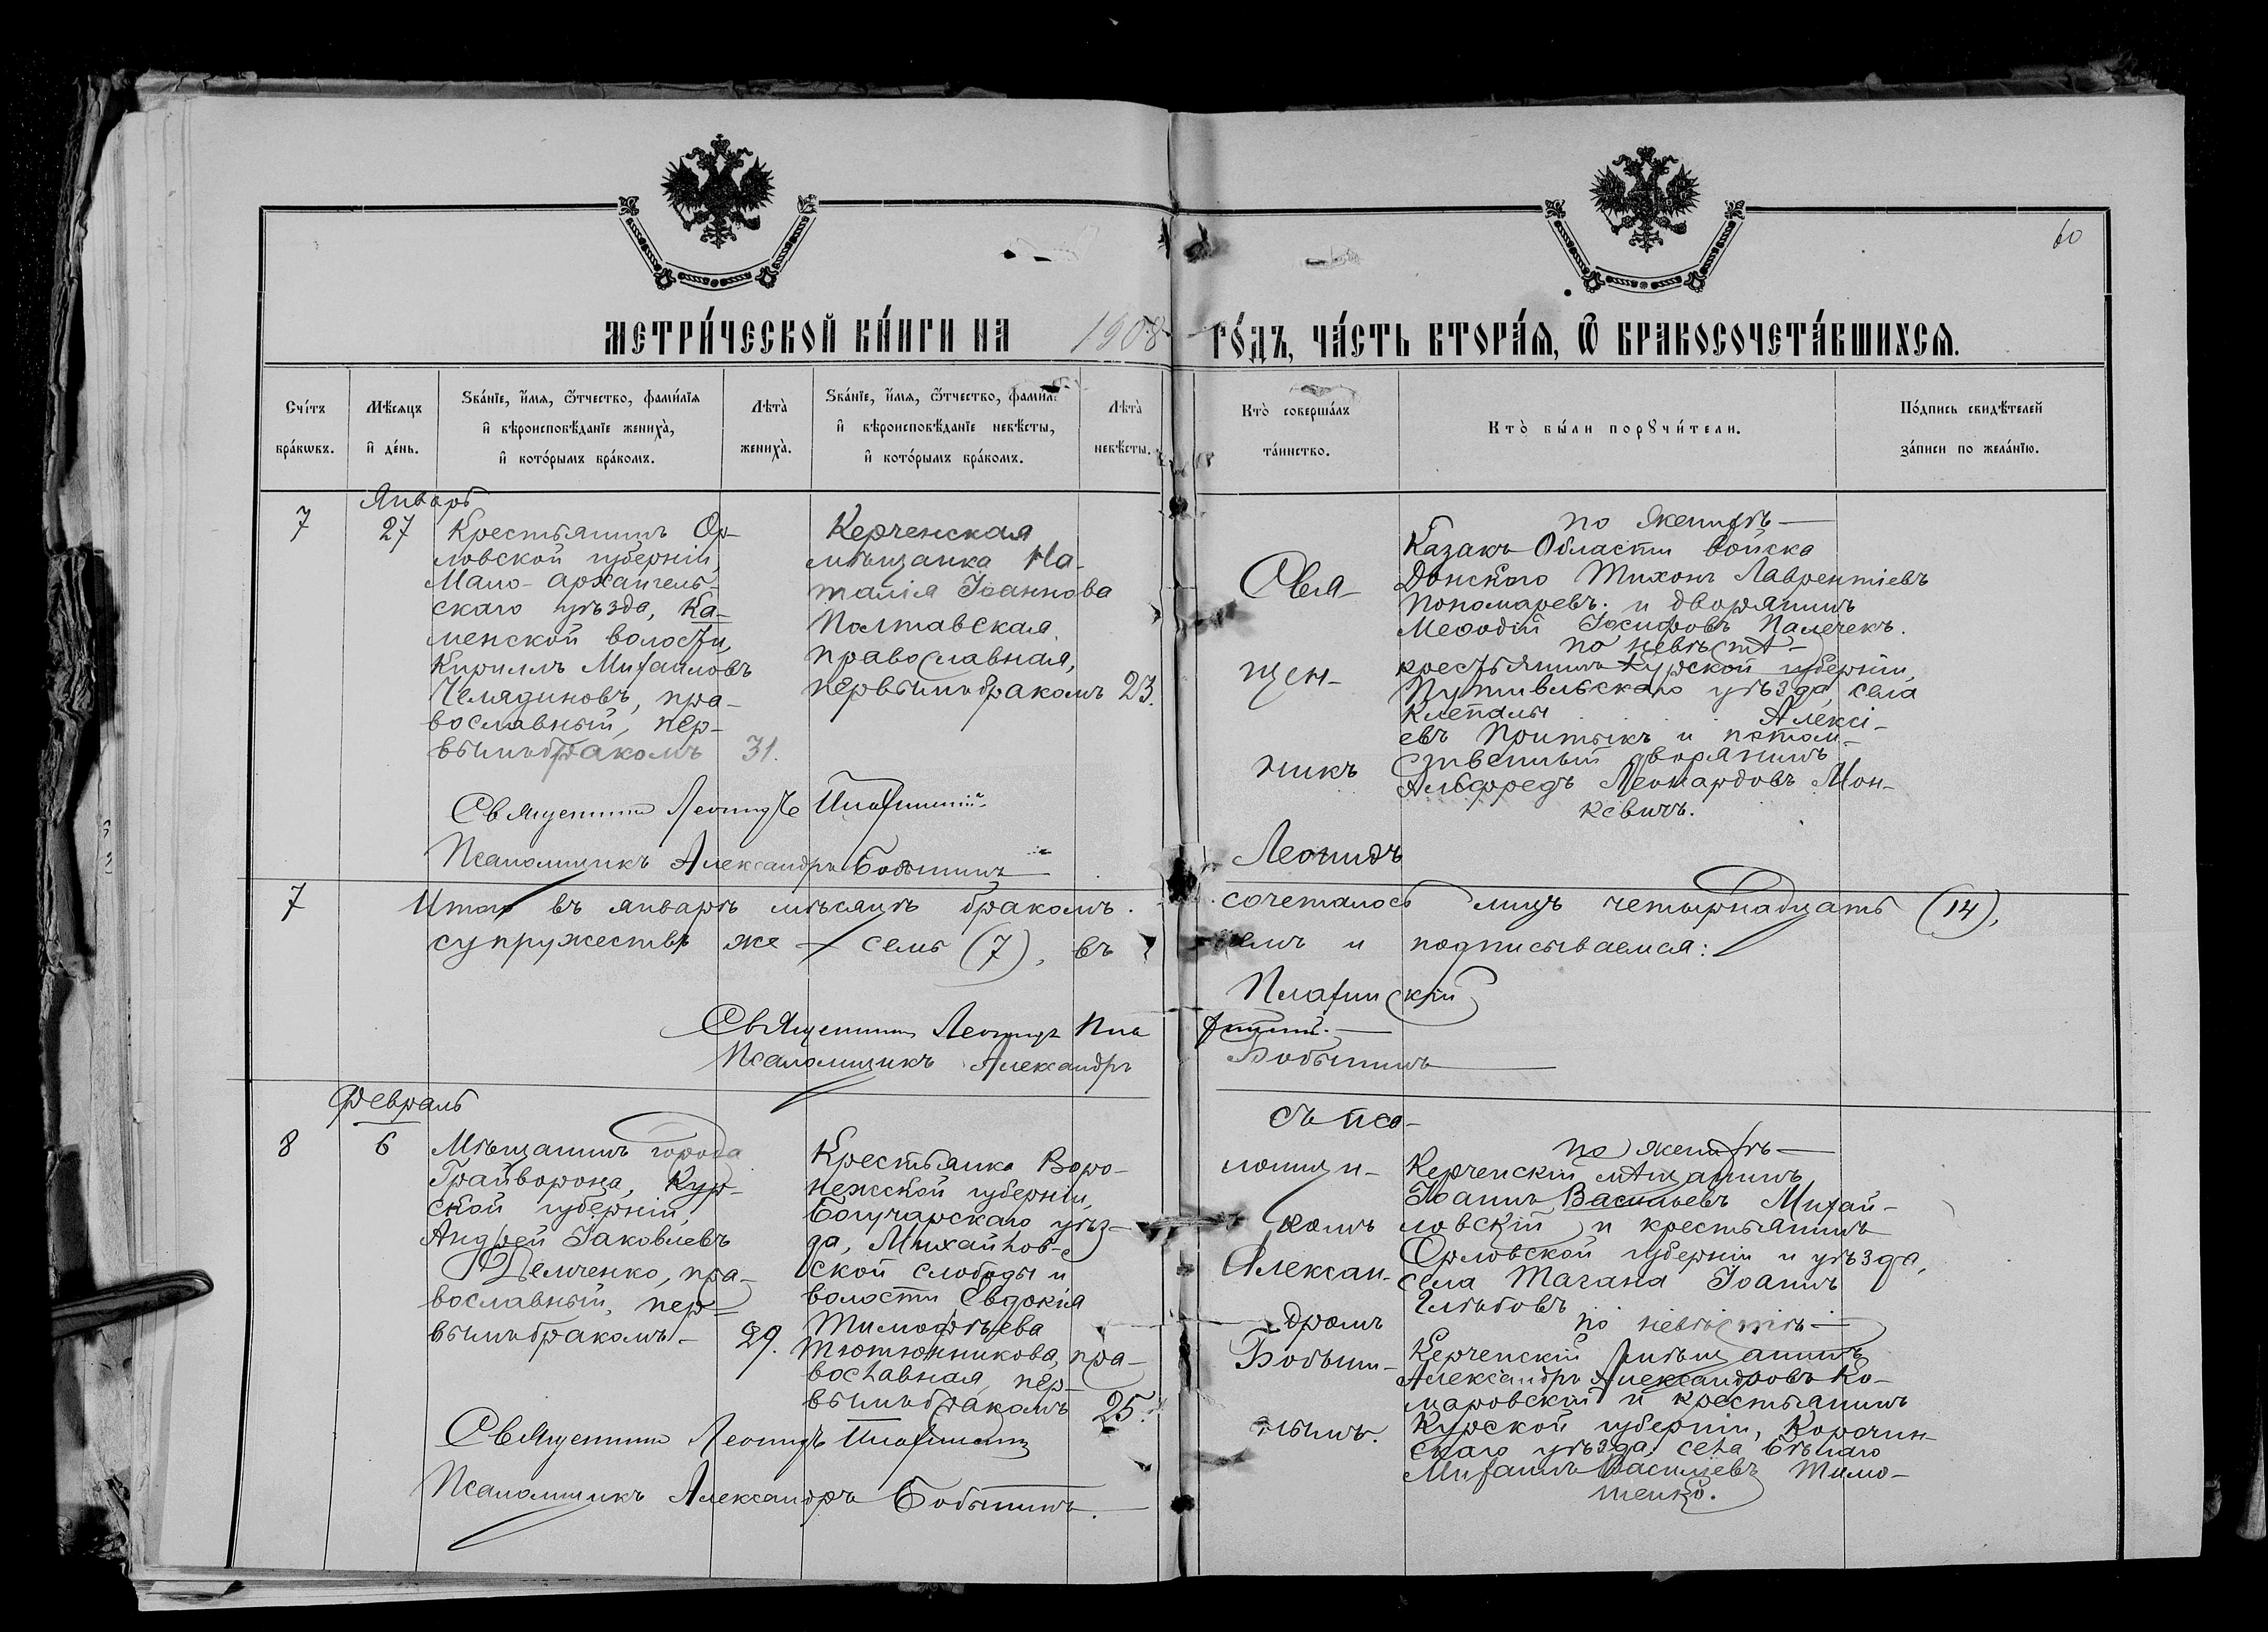 60
МЕТРИ́ЧЕСКОЙ КНИ́ГИ НА 1908 ГО́ДЪ, ЧА́СТЬ ВТОРА́Я, Ѿ БРАКОСОЧЕТА́ВШИХСЯ.
Сче́тъ бра́кωвъ.
Мѣ́сяцъ и҆ де́нь.
Ѕва́нїе, и҆́мя, ѻ҆́тчество, фами́лїя
и҆ вѣроисповѣ́данїе жениха̀,
и҆ кото́рымъ бра́комъ.
Лѣта̀ жениха̀.
Ѕва́нїе, и҆́мя, ѻ҆́тчество, фами́л.
и҆ вѣроисповѣ́данїе невѣ́сты,
и҆ кото́рымъ бра́комъ.
Лѣта̀ невѣ́сты.
Кто̀ соверша́лъ
та́инство.
Кто̀ бы́ли порꙋчи́тели.
По́дпись свидѣ́телей
за́писи по жела́нїю.
Январь
7
27
Крестьянинъ Ор-
ловской губерніи,
Мало-Архангель-
скаго уѣзда, Ка-
менской волости,
Кириллъ Михаиловъ
Челядиновъ, пра-
вославный, пер-
вымъ бракомъ
31.
Керченская
мѣщанка На-
талія Іоаннова
Полтавская,
православная,
первымъ бракомъ
23.
Свя-
щен-
никъ
Леонидъ
по женихѣ —
Казакъ Области войска
Донского Тихонъ Лаврентіевъ
Пономаревъ; и дворянинъ
Меѳодій Іосифовъ Палечекъ.
по невѣстѣ —
крестьянинъ Курской губерніи,
Путивльскаго уѣзда, села
Клепалы Алексі-
евъ Притыкъ и потом-
ственный дворянинъ
Альфредъ Леонардовъ Мон-
кевичъ.
Священникъ Леонидъ
Псаломщикъ Александръ Бобынинъ
7
Итого въ январѣ мѣсяцѣ бракомъ сочеталось лицъ четырнадцать (14),
супружествъ же — семь (7), въ чемъ и подписываемся:
Священникъ Леонидъ
Псаломщикъ Александръ Бобынинъ
Февраль
8
6
Мѣщанинъ города
Грайворона, Кур-
ской губерніи,
Андрей Іаковлевъ
Демченко, пра-
вославный, пер-
вымъ бракомъ —
29.
Крестьянка Воро-
нежской губерніи,
Богучарскаго уѣз-
да, Михайлов-
ской слободы и
волости Евдокія
Тимофѣева
Тютюнникова, пра-
вославная, пер-
вымъ бракомъ
25.
съ пса-
ломщи-
комъ
Алексан-
дромъ
Бобыни-
нымъ.
по женихѣ —
Керченскій мѣщанинъ
Іоаннъ Васильевъ Михай-
ловскій и крестьянинъ
Орловской губерніи и уѣзда,
села Тагана Іоаннъ
Глѣбовъ
по невѣстѣ —
Керченскій мѣщанинъ
Александръ Александровъ Ко-
маровскій и крестьянинъ
Курской губерніи, Корочан-
скаго уѣзда, села Бѣлаго
Михаилъ Васильевъ Тимо-
шенко.
Священникъ Леонидъ
Псаломщикъ Александръ Бобынинъ.